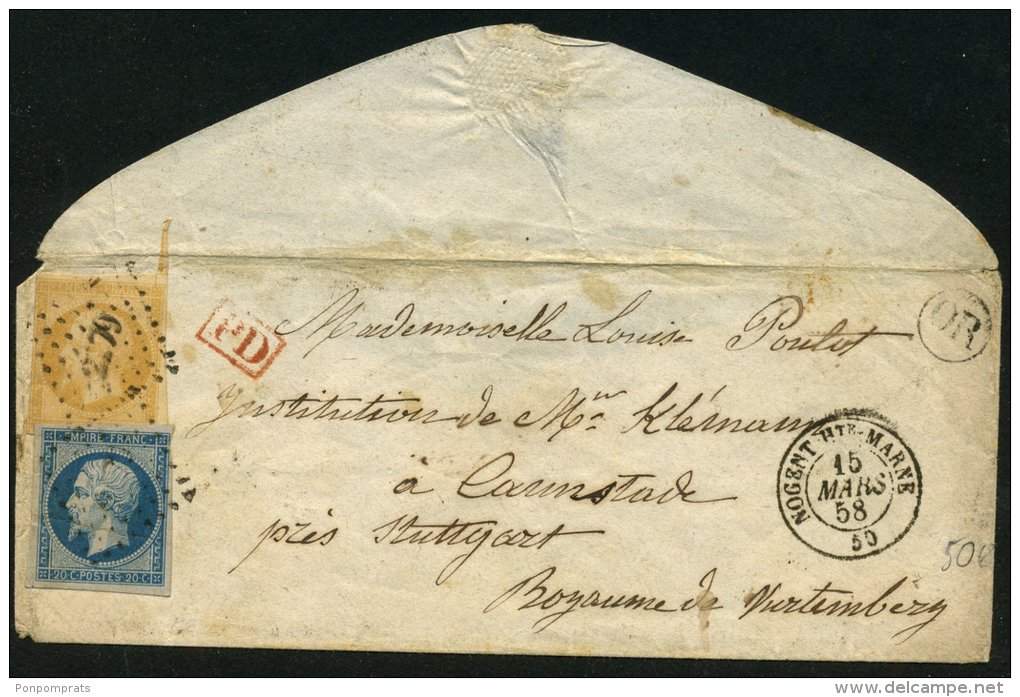 EMPIRE FRANC
2279
PD
OR
Mademoiselle Louise Poulot
Institution de Mr. Klémann
à Cannstade
près Stuttgart
Royaume de Vurtemberg
NOGENT-HTE-MARNE
15
MARS
58
50
50€
EMPIRE FRANC
20 C. POSTES. 20 C.
Ponpomprats
delcampe.net